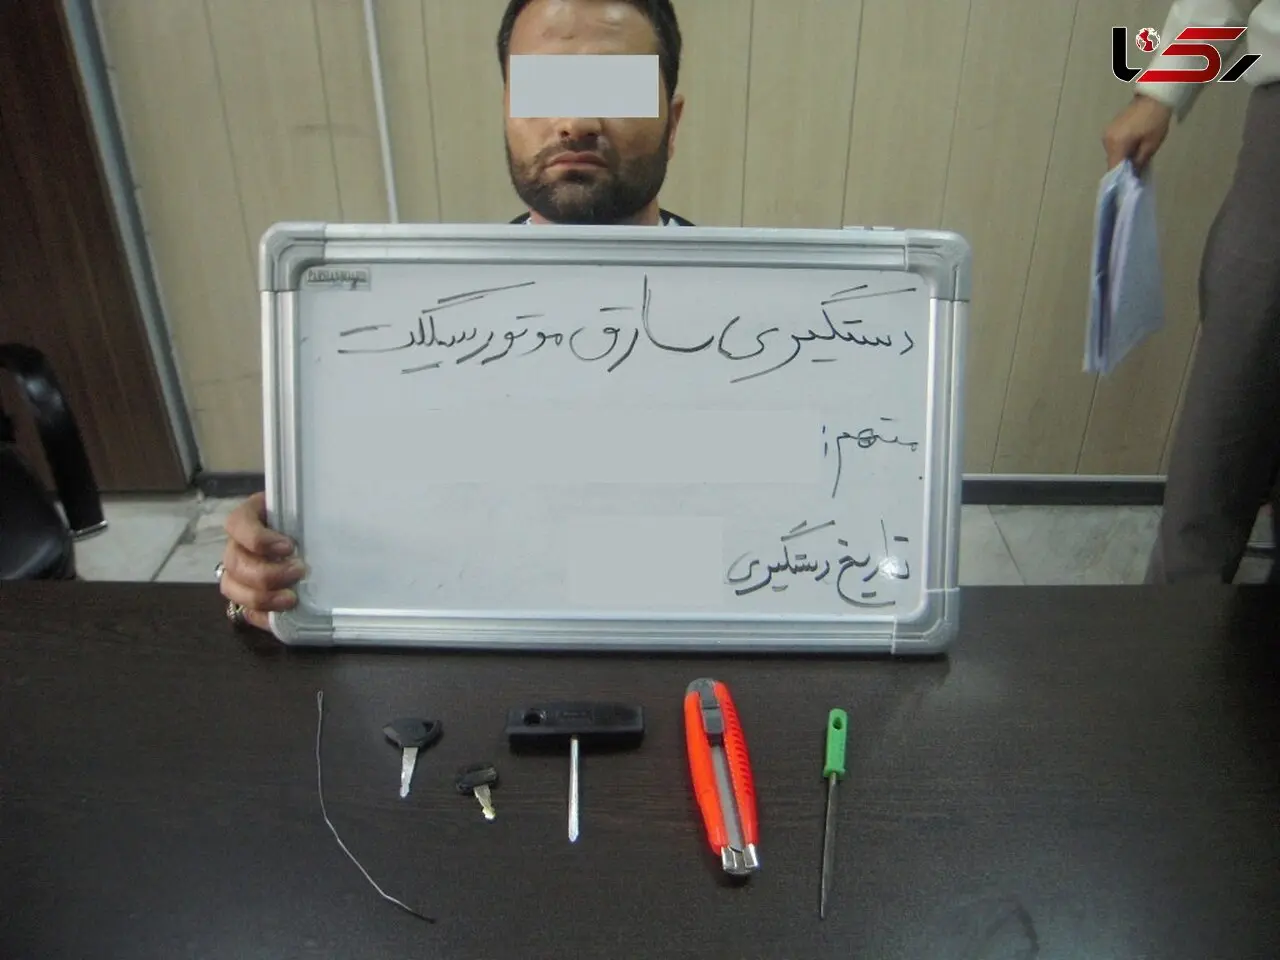 رکنا
دستگیری سارق موتورسیکلت
متهم:
تاریخ دستگیری